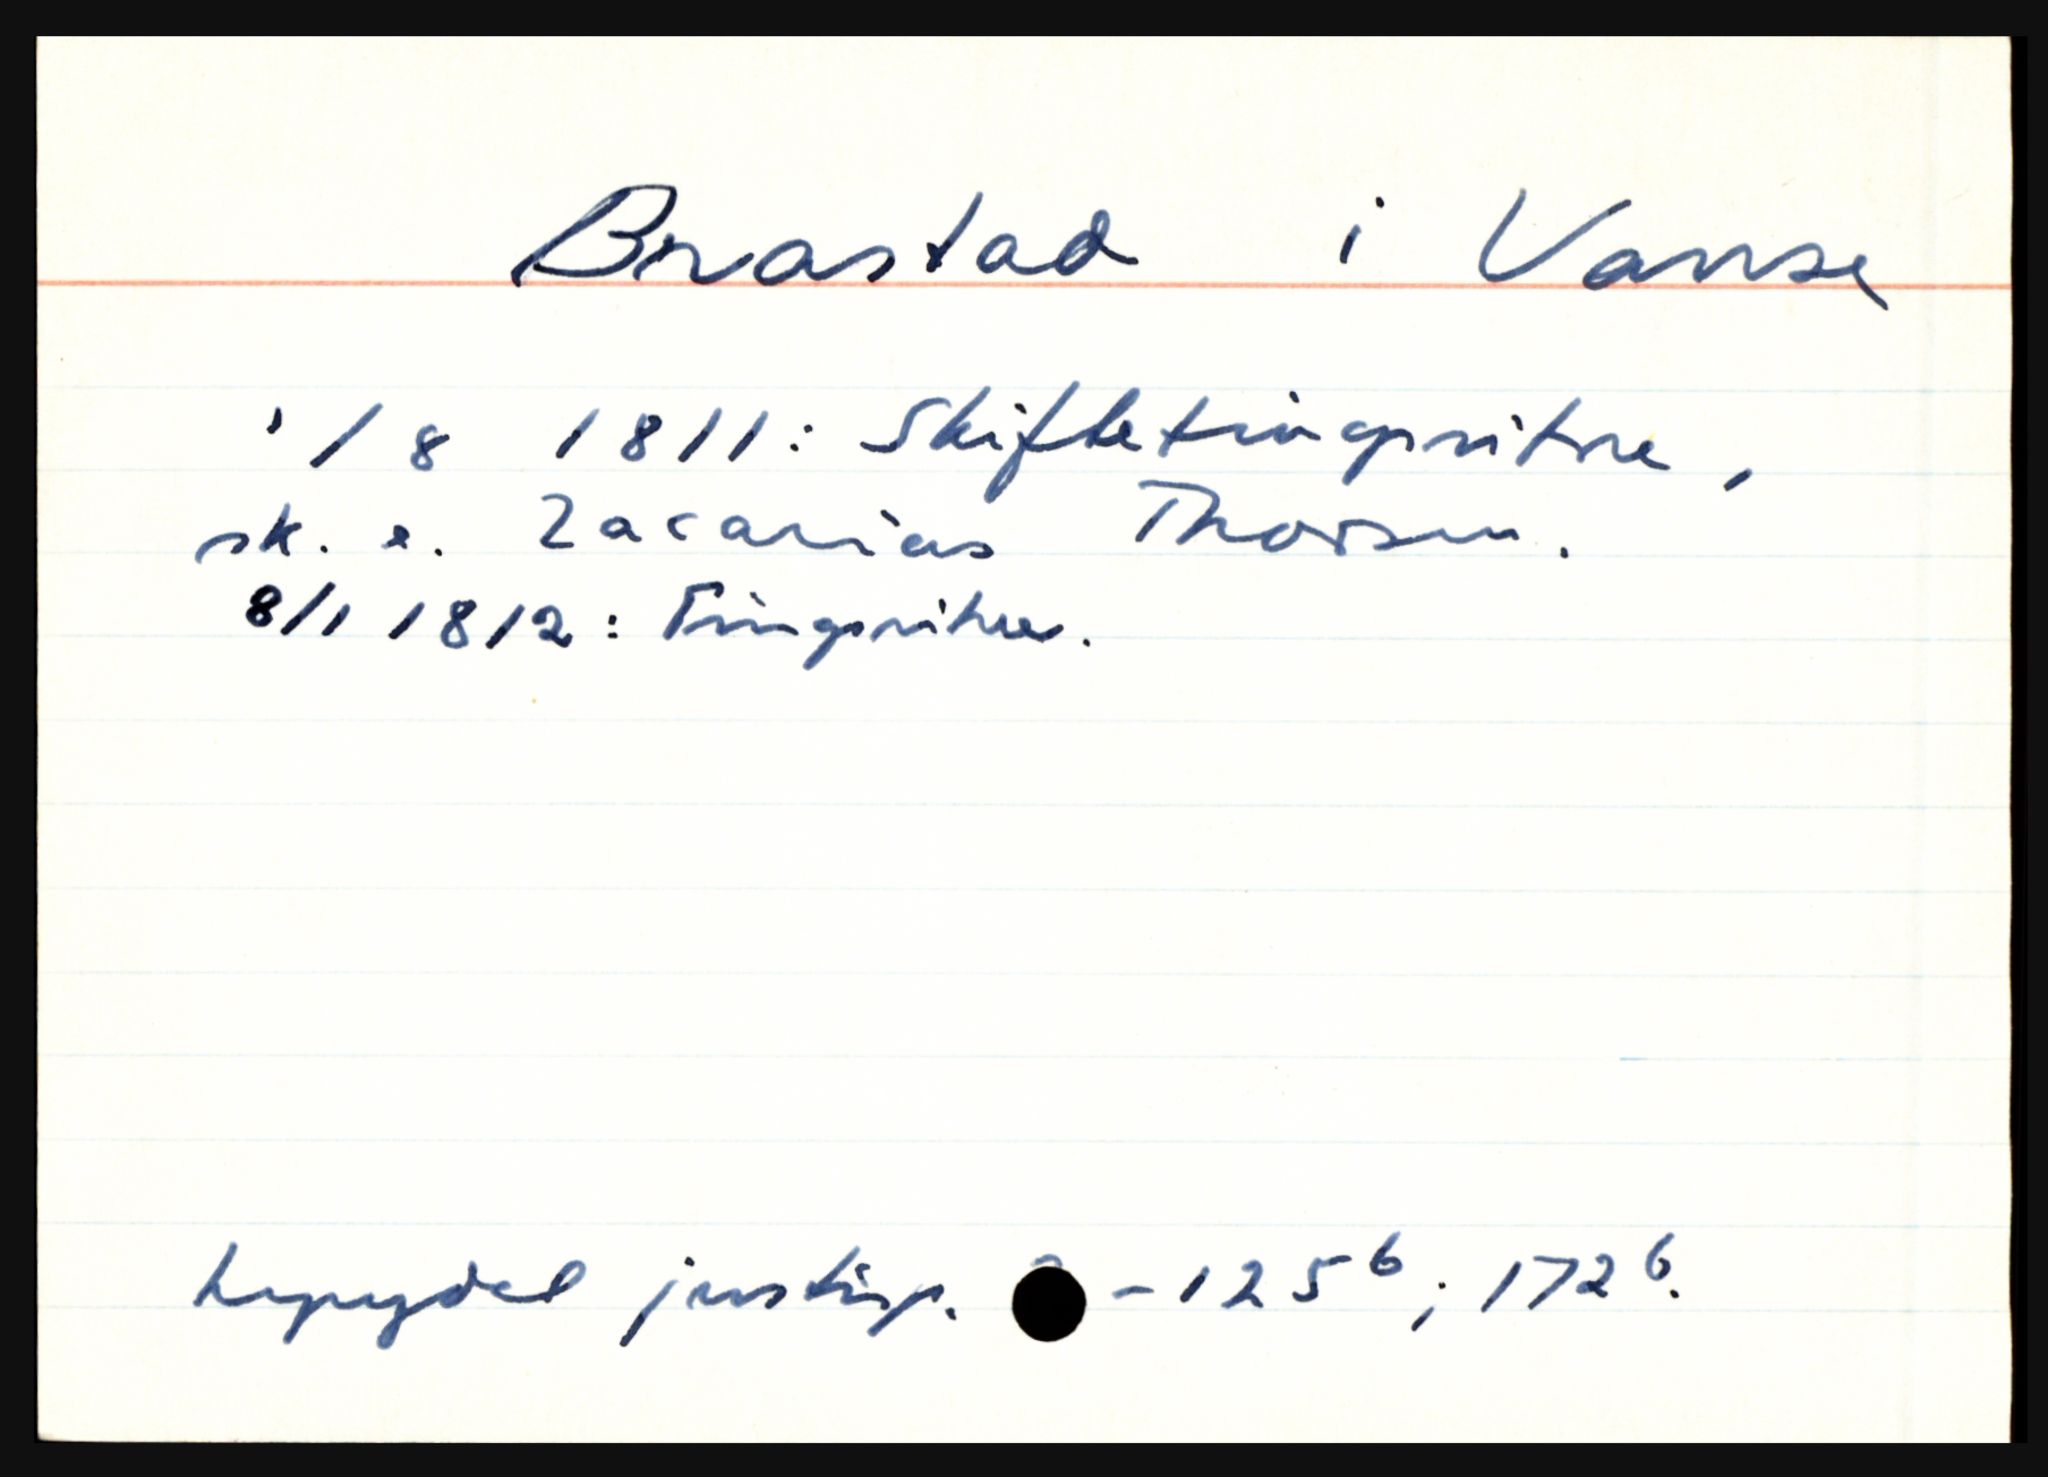 Brastad i Vanse
1/8 1811: Skifletingsvitne,
sk. e. Zacarias Thorsen.
8/1 1812: Tingsvitne.
justisp. -125⁶; 172⁶.